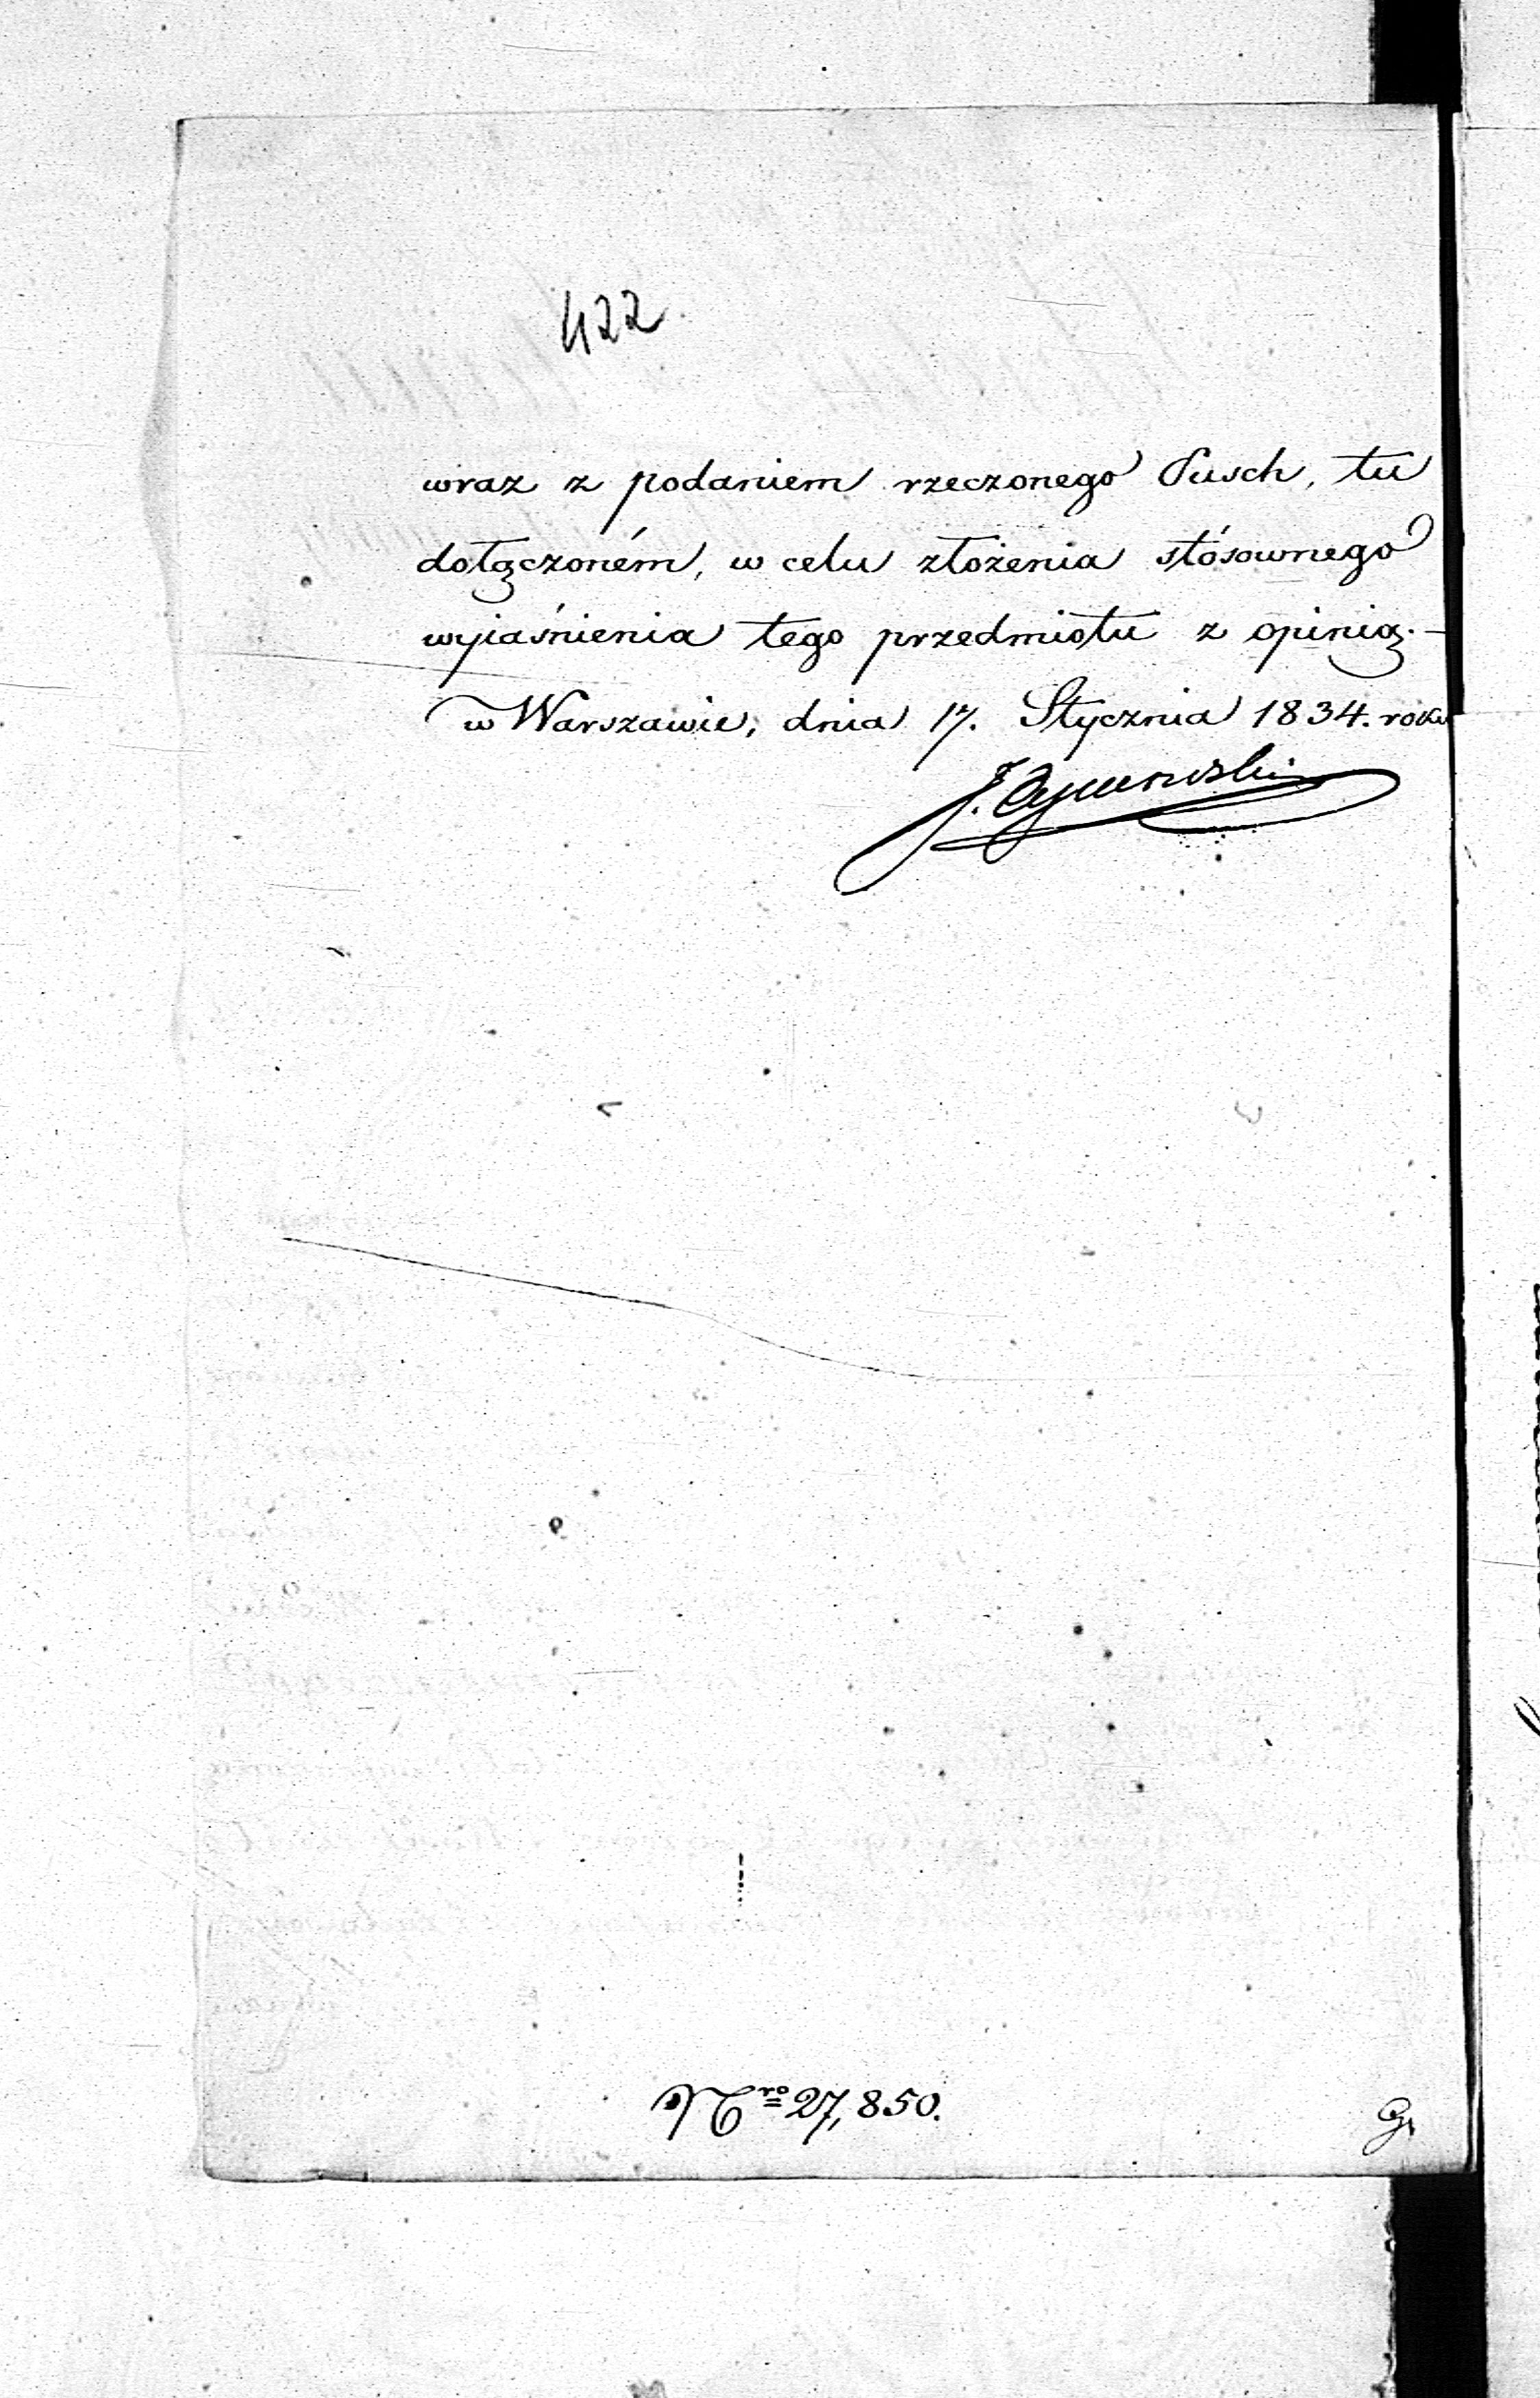 422
wraz z podaniem rzeczonego Pusch, tu
dołączoném, w celu złożenia stósownego
wyiaśnienia tego przedmiotu z opinią.-
w Warszawie, dnia 17. Stycznia 1834. roku
J.
Nro 27,850.